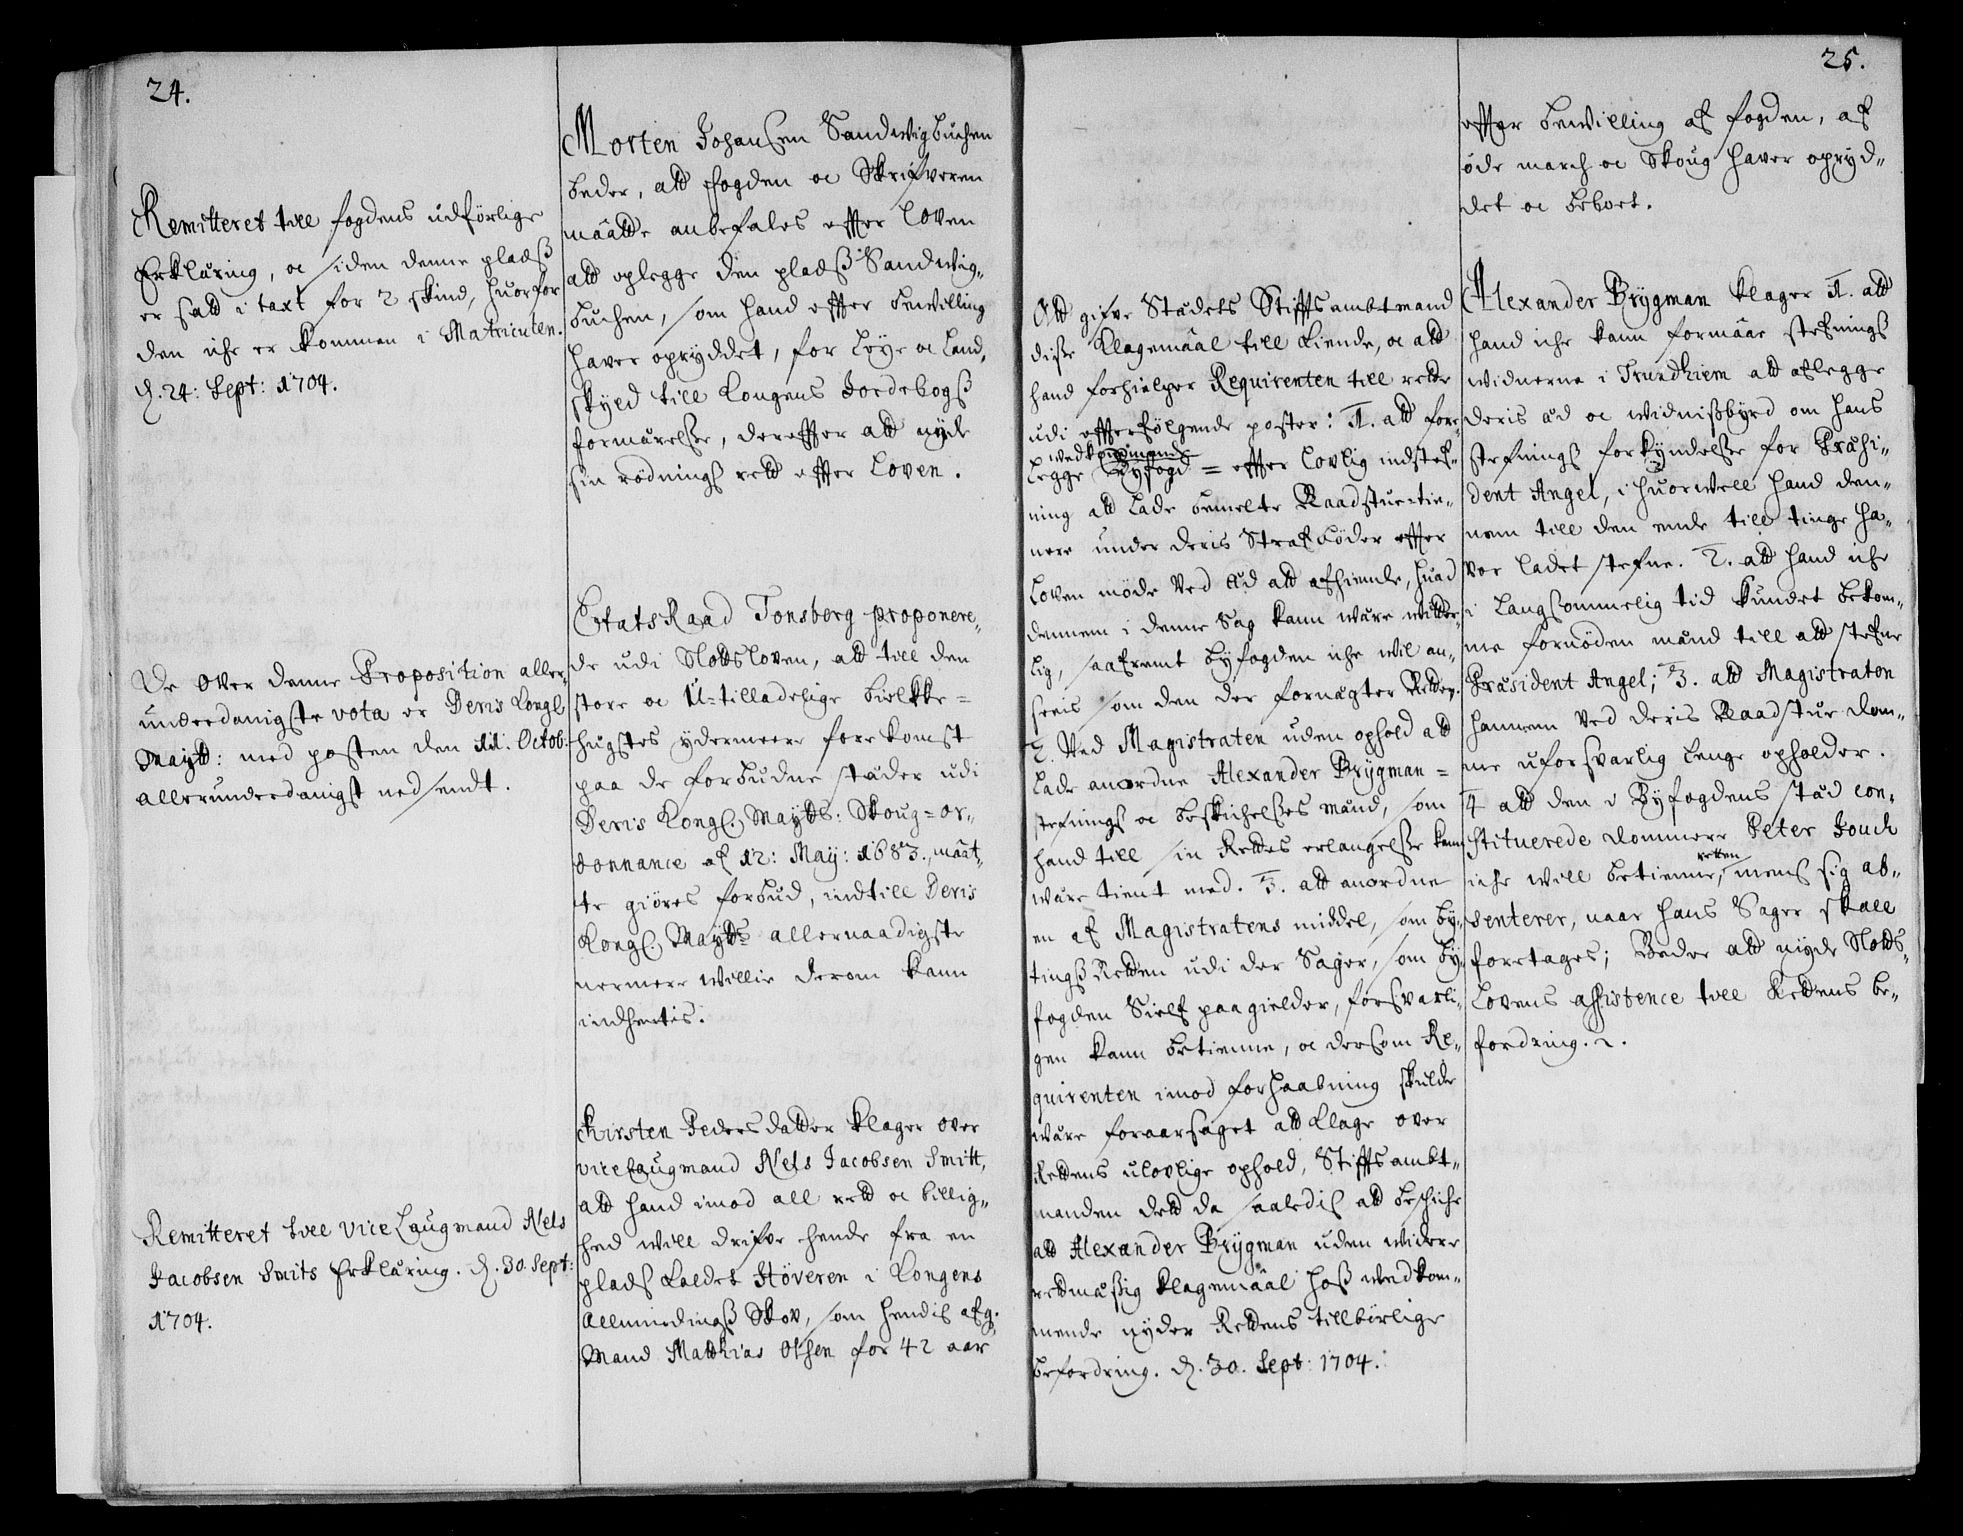 24.
Remitteret till fogdens udförlige
Erklæring, oc siden denne pladß
er satt i taxt for 2 skind, huorfor
den iche er kommen i Matriculen.
d. 24: Sept: 1704.
De over denne Proposition aller-
underdanigste vota er Deris Kongl
Maytt: med posten den 11. Octob:
allerunderdanigst nedsendt.
Remitteret till vice Laugmand Nels
Jacobsen Smits Erklæring. d. 30. Sept:
1704.
Morten Johansen Sandwigbuchen
beder, att fogden oc Skrifveren
maatte anbefales effter Loven
att oplegge den pladß Sandwig-
buchen, som hand effter bewilling
haver opryddet, for Leye oc Land-
skyld till Kongens Jordebogs
formærelse, dereffter att nyde
sin rödnings rett effter Loven.
EtatsRaad Tonsberg proponere-
de udi Slottsloven, att till den
store oc U-tilladelige bielkke-
hugstes ydermeere forekomst
paa de forbudne stæder udi
Deris Kongl. Maytts: Skoug-or-
donnance af 12: May: 1683., maat-
te giöres forbud, indtill Deris
Kongl. Maytts allernaadigste
nermere Willie derom kand
indhentis.
Kirsten Pedersdatter klager over
vice Laugmand Nels Jacobsen Smitt,
att hand imod all rett oc billig-
hed will drifve hende fra en
plads kaldet Höveren i Kongens
Allmindings Skov, som hendis afg.
Mand Matthias Olsen for 42 aar
25.
Att gifve Stædets Stifftsambtmand
disse Klagemaal till Kiende, oc att
hand forhielper Requirenten till rette
udi effterfölgende poster: 1. att fore-
legge Byfogd = effter lovlig indstef-
wedkommende
ning att lade bemelte Raadstue-tie-
nere under deris Straf böder effter
Loven möde ved Æd att afhiemle, huad
dennem i denne Sag kand være witter-
lig, saafremt byfogden iche wil an-
sees som den der fornægter Retten.
2. Ved Magistraten uden ophold att
lade anordne Alexander Brÿgman =
stefnings oc beskichelses mænd, som
hand till sin Rettes erlangelse kand
være tient med. 3. att anordne
en af Magistratens middel, som by-
tingß Retten udi der Sager, som by-
fogden Sielf paagielder, forsvarli-
gen kand betienne, oc dersom Re-
quirenten imod forhaabning skulde
være foraarsaget att klage over
Rettens ulovlige ophold, Stifftsambt-
manden dett da saaledis att beskiche
att Alexander Brÿgman uden widere
rettmæssig klagemaal hoß wedkom-
mende nyder Rettens tillbörlige
befordring. d. 30. Sept: 1704.
effter bewilling af fogden, af
öde march oc Skoug haver opryd-
det oc beboet.
Alexander Brÿgman klager 1. att
hand iche kand formaae stefnings
widnerne i Trundhiem att aflegge
deris æd oc widnißbyrd om hans
stefnings forkyndelse for Præsi-
dent Angel, i huorwell hand den-
nem till den ende till tinge ha-
ver ladet stefne. 2. att hand iche
i Langsommelig tid kundet bekom-
me fornöden mænd till att stefne
Præsident Angel; 3. att Magistraten
hannem ved deris Raadstue dom-
me uforsvarlig lenge opholder.
4 att den i Byfogdens stæd con-
stituerede dommere Peter Jouch
iche will betienne, mens sig ab-
retten
senterer, naar hans Sager skall
foretages; Beder att nyde Slotts-
Lovens assistence till Rettens be-
fordring.